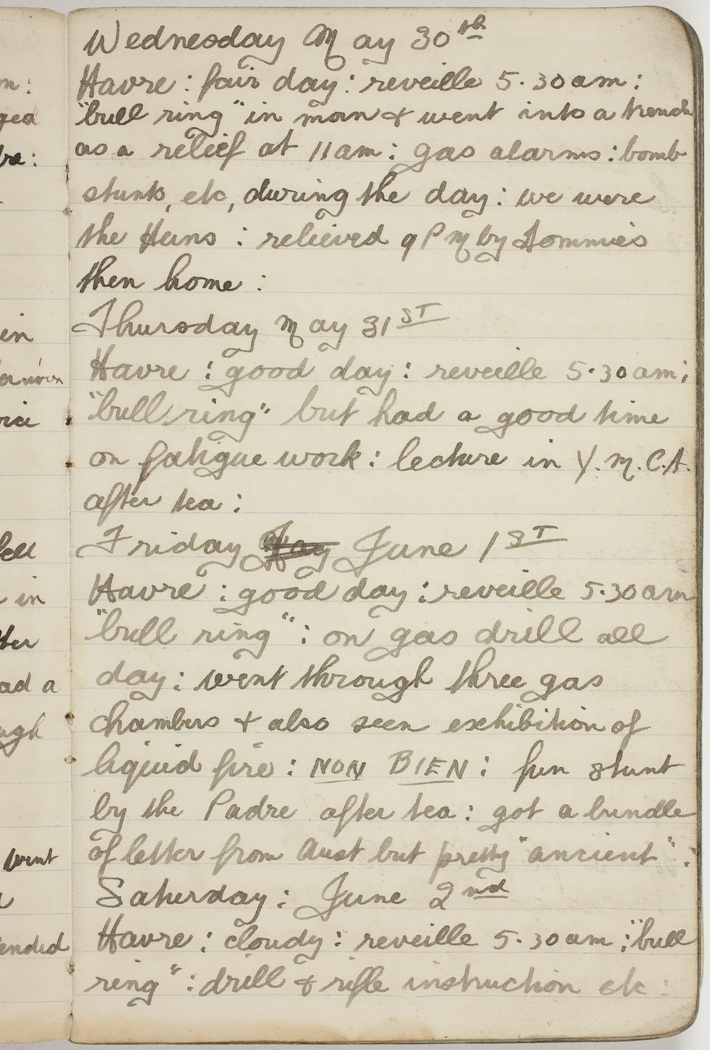 m:
ged
Wednesday May 30th
Havre: fair day: reveille 5.30am:
"bull ring" in morn & went into a trench
as a relief at 11am: gas alarms: bomb
stunts, etc, during the day: we were
the Huns: relieved 9PM by Tommies
then home:
Thursday May 31ST
Havre: good day: reveille 5.30am:
"bull ring" but had a good time
on fatigue work: lecture in Y.M.C.A.
after tea:
Friday May June 1ST
Havre: good day: reveille 5.30am
"bull ring": on gas drill all
day: went through three gas
chambers & also seen exhibition of
liquid fire: NON BIEN: fun stunt
by the Padre after tea: got a bundle
of letter from Aust but pretty "ancient":
Saturday: June 2nd
Havre: cloudy: reveille 5.30am: "bull
ring": drill & rifle instruction etc:
in
in
ad a
went
ended